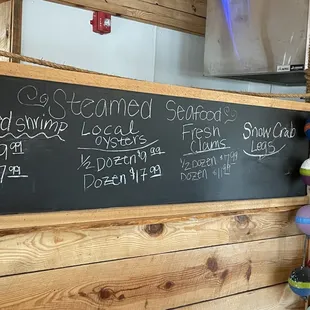 Steamed Seafood
d shrimp
Local
oysters
½ Dozen $9.99
Dozen $17.99
Fresh
Clams
½ Dozen $7.99
Dozen
Snow Crab
Legs